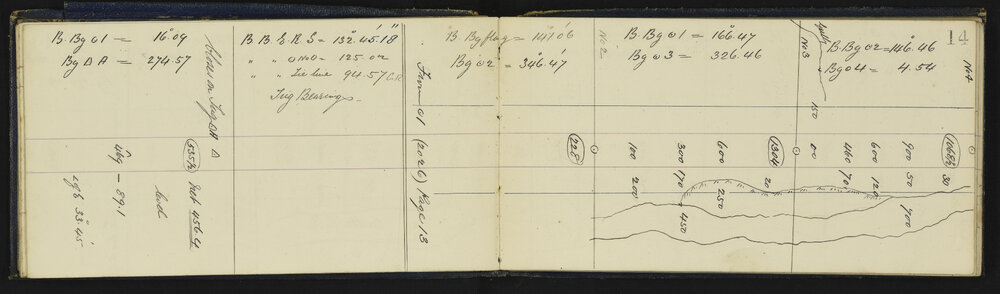 B. Bg ⊙1 = 16°09
Bg Δ A = 274.57
B. B. S. R. S = 132°.45'.18"
" " ⊙NO = 125.02
" " Tie line 94.57
Trig Bearings
Close on Trig ΔA
535½
456.4
Kg - 89.1
33.45
01 (2026) Page 13
B Bg flag = 141°06
Bg ⊙2 = 346.47
No 2
B. Bg ⊙1 = 166.47
Bg ⊙3 = 326.46
No 3
B. Bg ⊙2 = 146.46
Bg ⊙4 = 4.54
14
No 4
150
228
100
300
600
1304
00
460
600
900
1068½
200
170
250
20
70
120
50
30
450
700